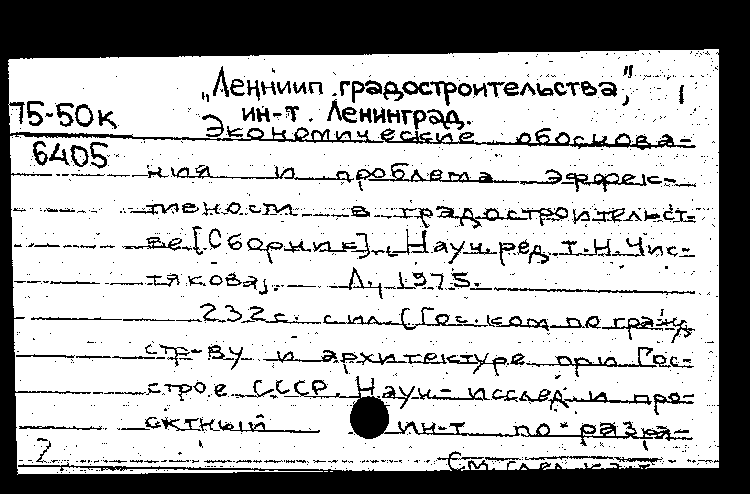 „Ленниип градостроительства", 1
75-50к ин-т. Ленинград.
6405 Экономические обоснова-
ния и проблема эффек-
тивности в градостроительст-
ве [Сборник]. Науч. ред. Т.Н. Чис-
тякова]. Л., 1975.
232 с. с ил. (Гос. ком. по гражд.
стр-ву и архитектуре при Гос-
строе СССР. Науч.- исслед. и про-
ектный ин-т по разра-
2 См. след. к-т